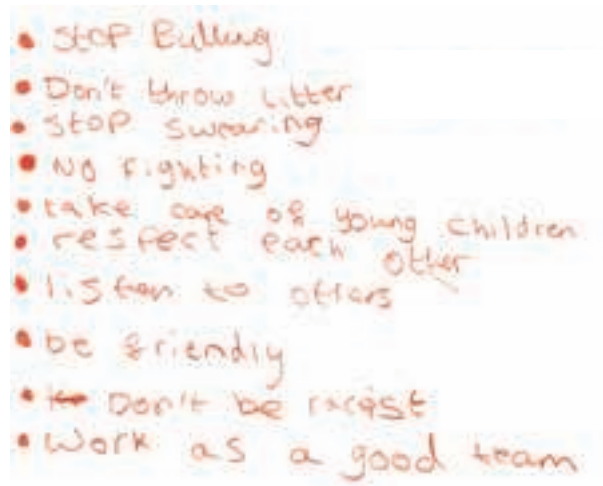 • Stop Bulling
• Don't throw litter
• Stop swearing
• No fighting
• take care of young children
• respect each other
• listen to others
• be friendly
• Don't be racist
• Work as a good team